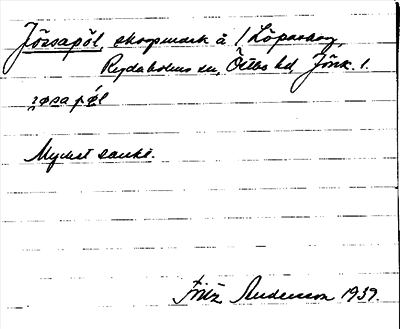 Jössapöl, skogsmark å 1 Löparskog,
Rydaholms sn, Östbo hd, Jönk. l.
jøsapøl
Mycket sankt.
Fritz Andersson 1939.